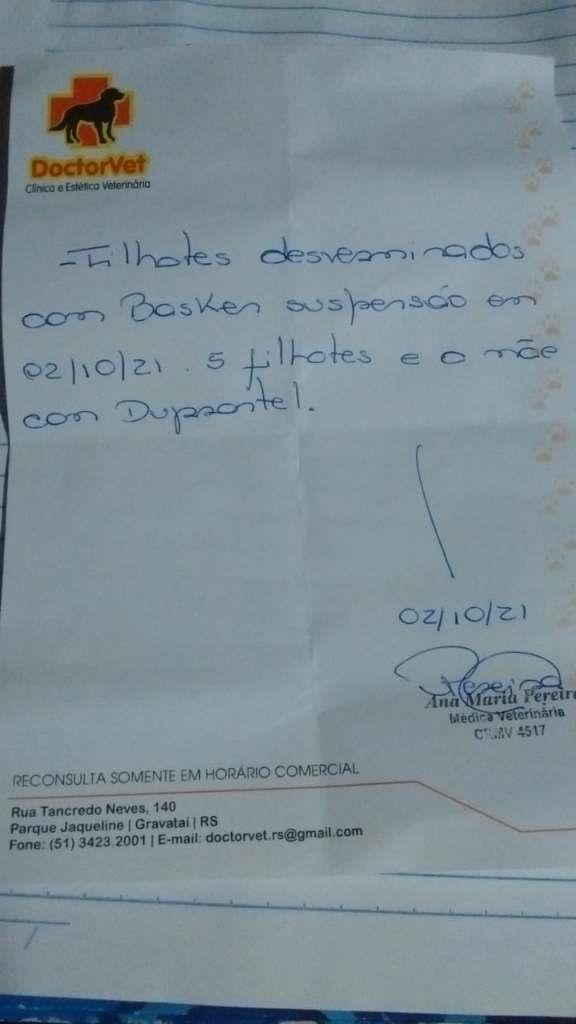 DoctorVet
Clínica e Estética Veterinária
- Filhotes desverminados
com Basken suspensão em
02/10/21. 5 filhotes e a mãe
com Duprantel.
02/10/21
Pereira
Ana Maria Pereira
Médica Veterinária
CRMV 4517
RECONSULTA SOMENTE EM HORÁRIO COMERCIAL
Rua Tancredo Neves, 140
Parque Jaqueline | Gravataí | RS
Fone: (51) 3423.2001 | E-mail: doctorvet.rs@gmail.com